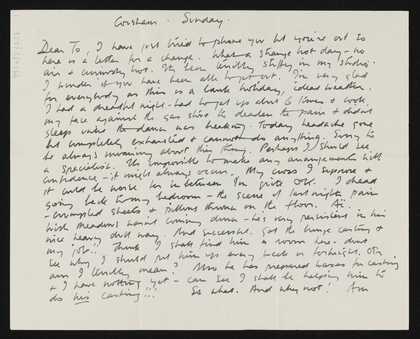 Corsham. Sunday.
Dear To, I have just tried to phone you but you're out so
here is a letter for a change. What a strange hot day - no
air & curiously hot. It's been terribly stuffy in my studio.
I wonder if you have been able to go out. I'm very glad
for everybody as this is a bank holiday, ideal weather.
I had a dreadful night - had to get up about 6 times & cook
my face against the gas stove to deaden the pain & didn't
sleep until the dawn was breaking. Today headache gone
but completely exhausted & cannot do anything. Sorry to
be always moaning about this thing. Perhaps I should see
a specialist. It's impossible to make any arrangements with
confidence - it might always occur. My cross I suppose &
it could be worse for in between I'm quite OK. I dread
going back to my bedroom - the scene of last night's pain
- crumpled sheets & pillows thrown on the floor. Ai!
with Meadows having coming down - he's very persistent in his
nice heavy dull way. And successful. Got the bronze casting &
my job!. Thinks I shall find him a room here - don't
see why I should put him up every week or fortnight. Oh
am I terribly mean? Also he has prepared waxes for casting
& I have nothing yet - can see I shall be helping him to
do his casting!!! So what. And why not! Am